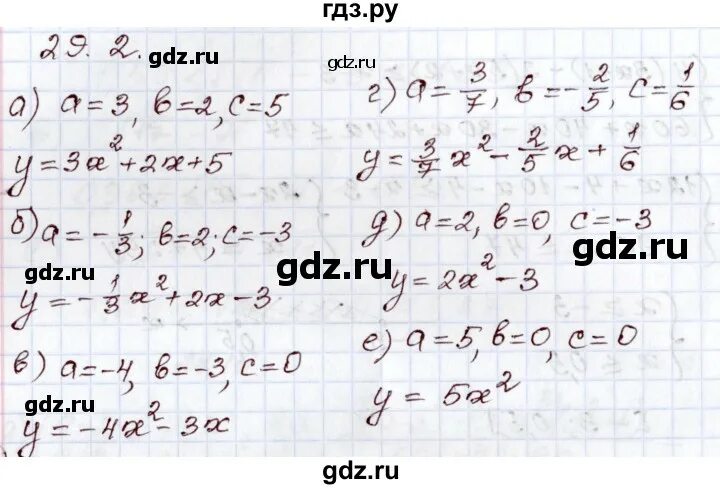 гдз.ру
29. 2.
gdz.ru
а) a=3, b=2, c=5
y=3x²+2x+5
б) a=-1/3; b=2; c=-3
gdz.ru
y=-1/3x²+2x-3
в) a=-4, b=-3, c=0
gdz.ru
y=-4x²-3x
gdz.ru
г) a=3/7, b=-2/5, c=1/6
y=3/7x²-2/5x+1/6
д) a=2, b=0, c=-3
gdz.ru
gdz.ru
y=2x²-3
е) a=5, b=0, c=0
y=5x²
gdz.ru
gdz.ru